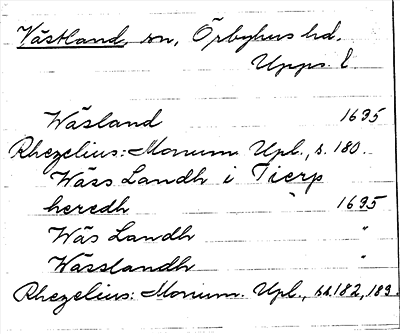 Västland, sn, Örbyhus hd.
Upps. l.
Wäsland 1635
Rhezelius: Monum. Upl., s. 180.
Wäss Landh i Tierp
heredh 1635
Wäs Landh "
Wässlandh "
Rhezelius: Monum. Upl., ss. 182, 183.